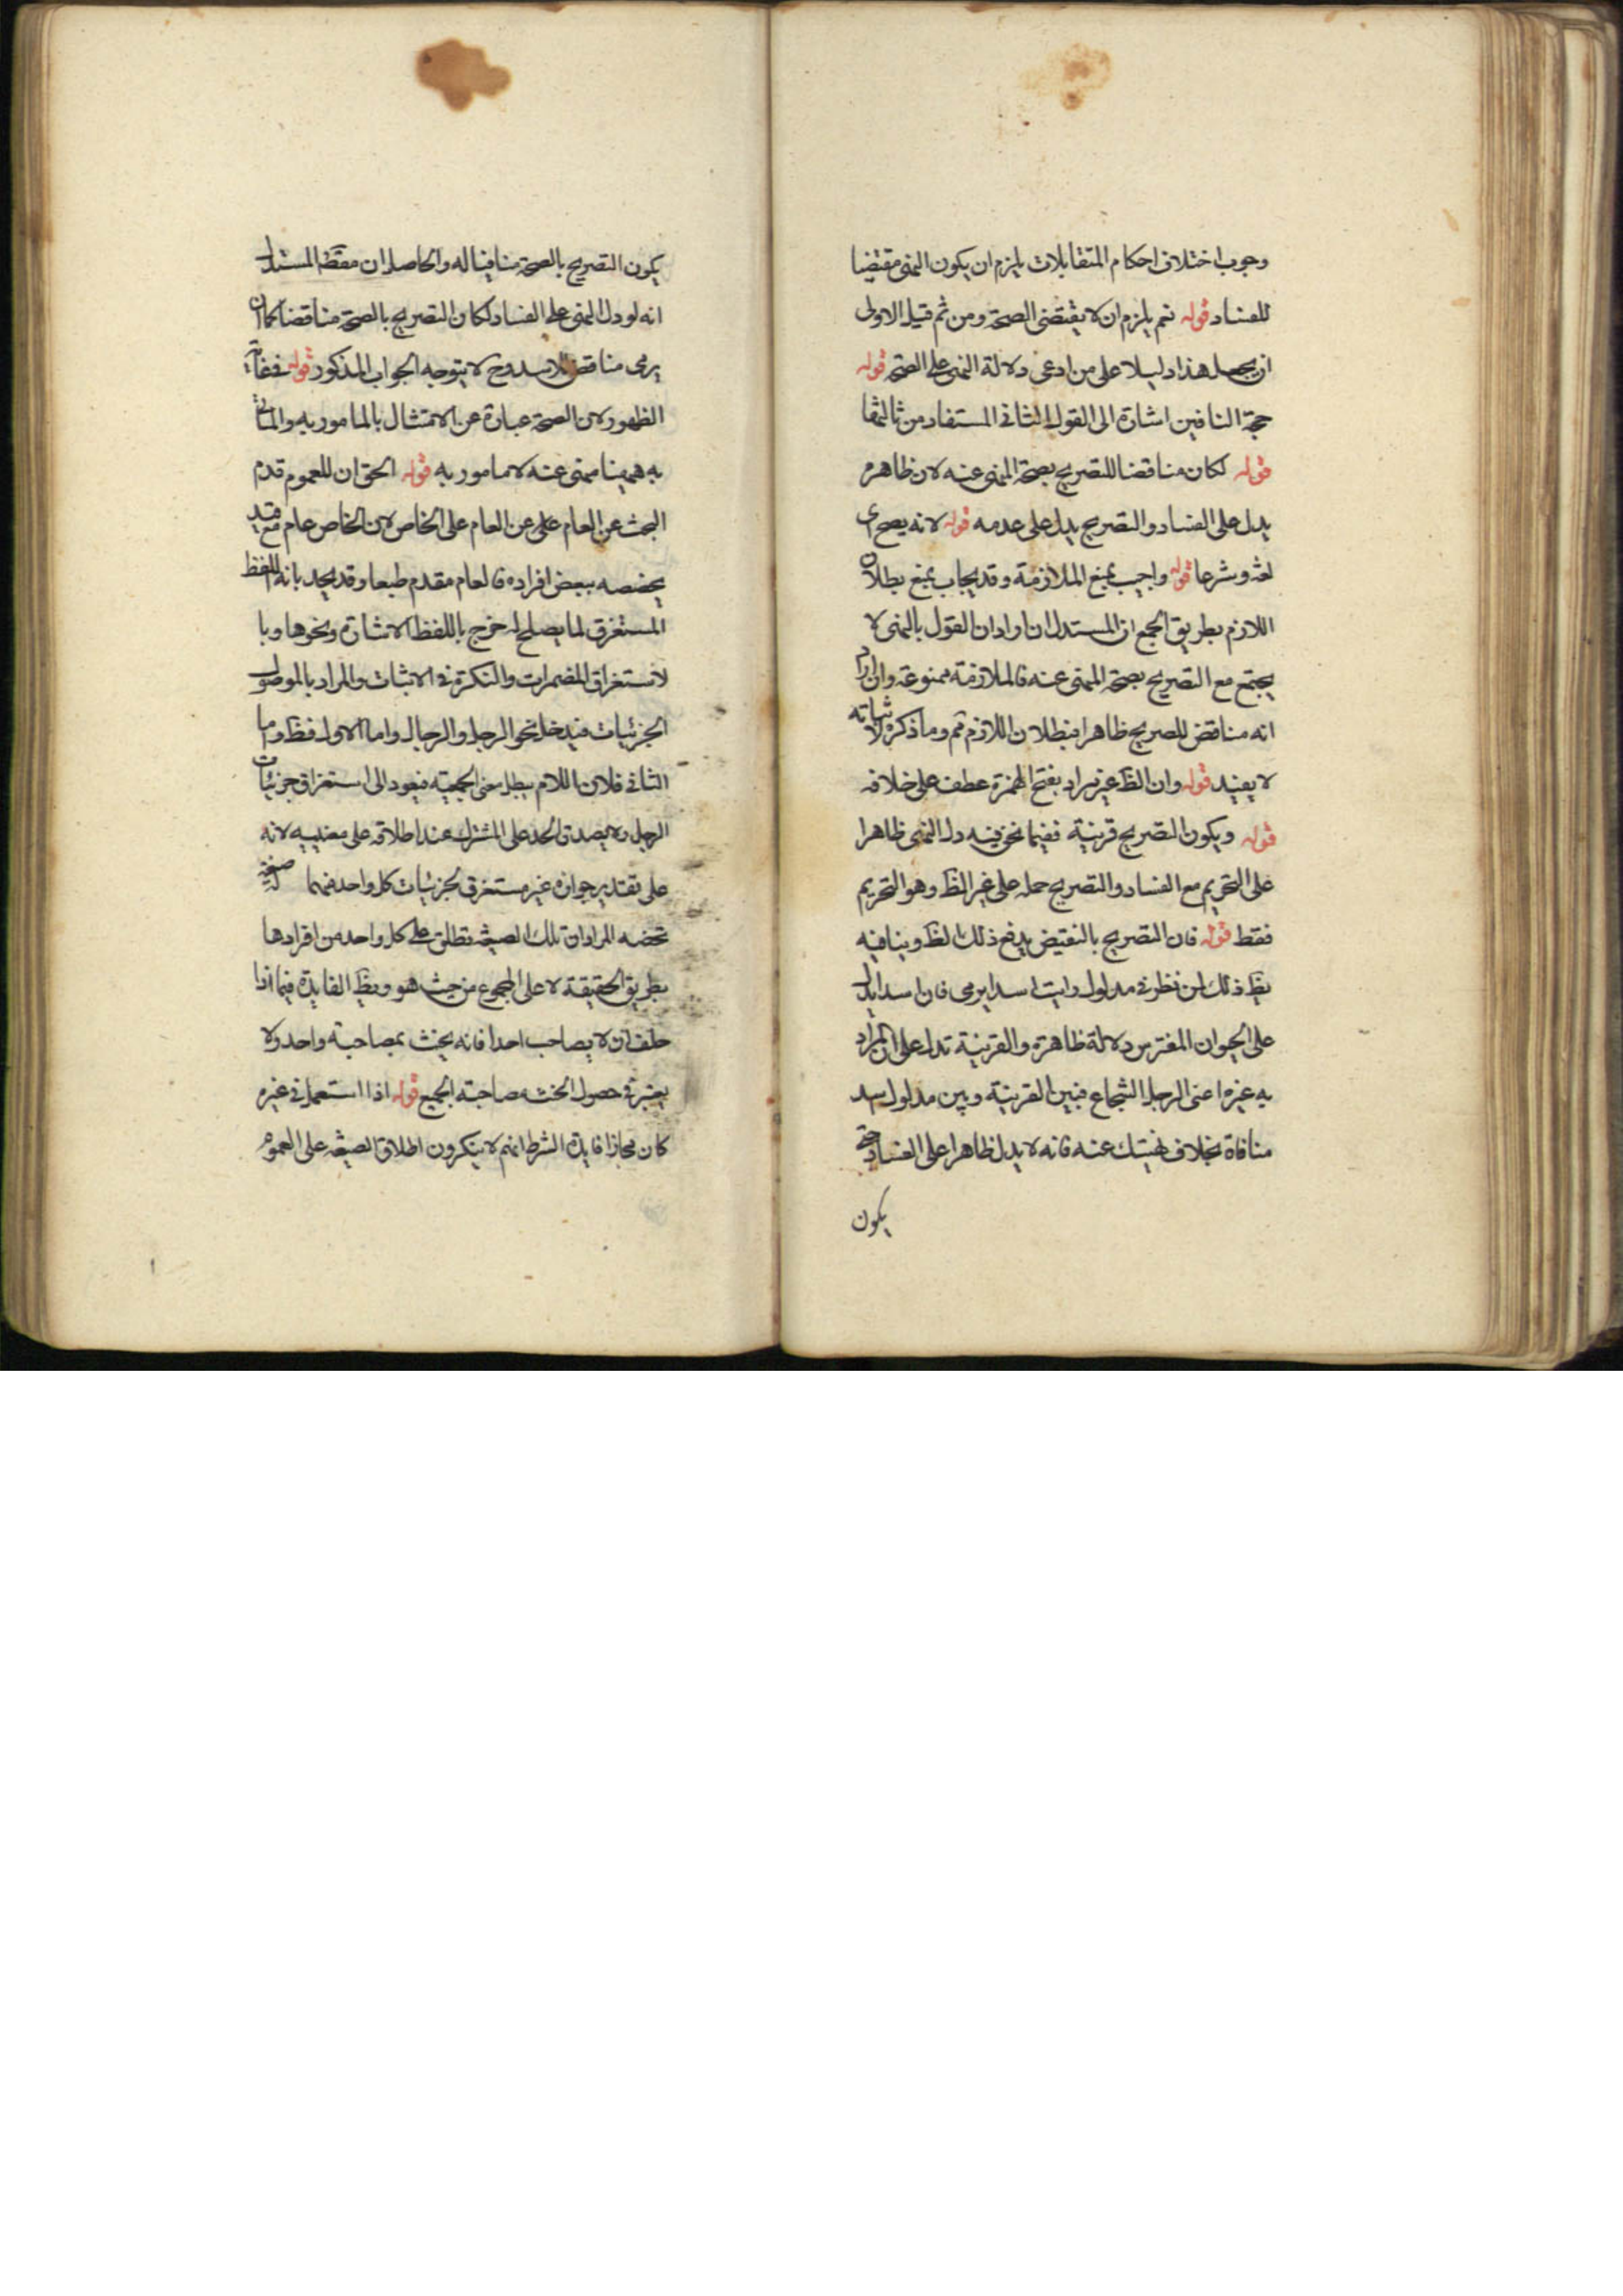 وجوب اختلاف احكام المتقابلات يلزم ان يكون النهى مقتضيا
للفساد قوله نعم يلزم ان لا يقتضى الصحة ومن ثم قيل الاولى
ان يجعل هذا دليلا على من ادعى دلالة النهى على الصحة قوله
حجة النافين اشارة الى القول الثانى المستفاد من ثالثها
قوله لكان مناقضا للتصريح بصحة المنهى عنه لان ظاهره
يدل على الفساد والتصريح يدل على عدمه قوله لانه يصح اى
لغة وشرعا قوله واجيب بمنع الملازمة وقد يجاب بمنع بطلان
اللازم بطريق الجمع اى المستدل ان اراد ان القول بالنهى لا
يجتمع مع التصريح بصحة المنهى عنه فالملازمة ممنوعة وان اراد
انه مناقض للصريح ظاهرا فبطلان اللازم مم وما ذكره لاثباته
لا يفيد قوله وان الظ غير مراد بفتح الهمزة عطف على خلافه
قوله ويكون التصريح قرينة ففيما نحن فيه دل النهى ظاهرا
على التحريم مع الفساد والتصريح حمله على غير الظ وهو التحريم
فقط قوله فان التصريح بالنقيض يدفع ذلك الظ وينافيه
يظ ذلك لمن نظر فى مدلول رايت اسدا يرمى فان اسدا يدل
على الحيوان المفترس دلالة ظاهرة والقرينة تدل على ان المراد
به غيره اعنى الرجل الشجاع فبين القرينة وبين مدلول اسد
منافاة بخلاف نهيتك عنه فانه لا يدل ظاهرا على الفساد حتى
يكون
يكون التصريح بالصحة منافيا له والحاصل ان مقتضى المستدل
انه لو دل النهى على الفساد لكان التصريح بالصحة مناقضا كما ان
يرمى مناقض للاسد وح لا يتوجه الجواب المذكور قوله ففى غاية
الظهور لان الصحة عبارة عن الامتثال بالمامور به والماتى
به ههنا منهى عنه لا مامور به قوله الحق ان للعموم قدم
البحث عن العام على عن العام على الخاص لان الخاص عام مع قيد
يخصصه ببعض افراده فالعام مقدم طبعا وقد يحد بانه اللفظ
المستغرق لما يصلح له خرج باللفظ الاشارة ونحوها وبا
لاستغراق المضمرات والنكرة فى الاثبات والمراد بالموصول
الجزئيات فيدخل نحو الرجل والرجال واما الاول فظ واما
الثانى فلان اللام يبطل معنى الجمعية فيعود الى استغراق جزئيات
الرجل ولا يصدق الحد على المشترك عند اطلاقه على معنييه لانه
على تقدير جوازه غير مستغرق لجزئيات كل واحد منهما
تخصه المراد ان تلك الصيغة تطلق على كل واحد من افرادها
بطريق الحقيقة لا على المجموع من حيث هو ويظ الفايدة فيما اذا
حلف ان لا يصاحب احدا فانه يحنث بمصاحبة واحد ولا
يعتبر فى حصول الحنث مصاحبة الجميع قوله اذا استعمل فى غيره
كان مجازا فايدة الشرط انهم لا ينكرون اطلاق الصيغة على العموم